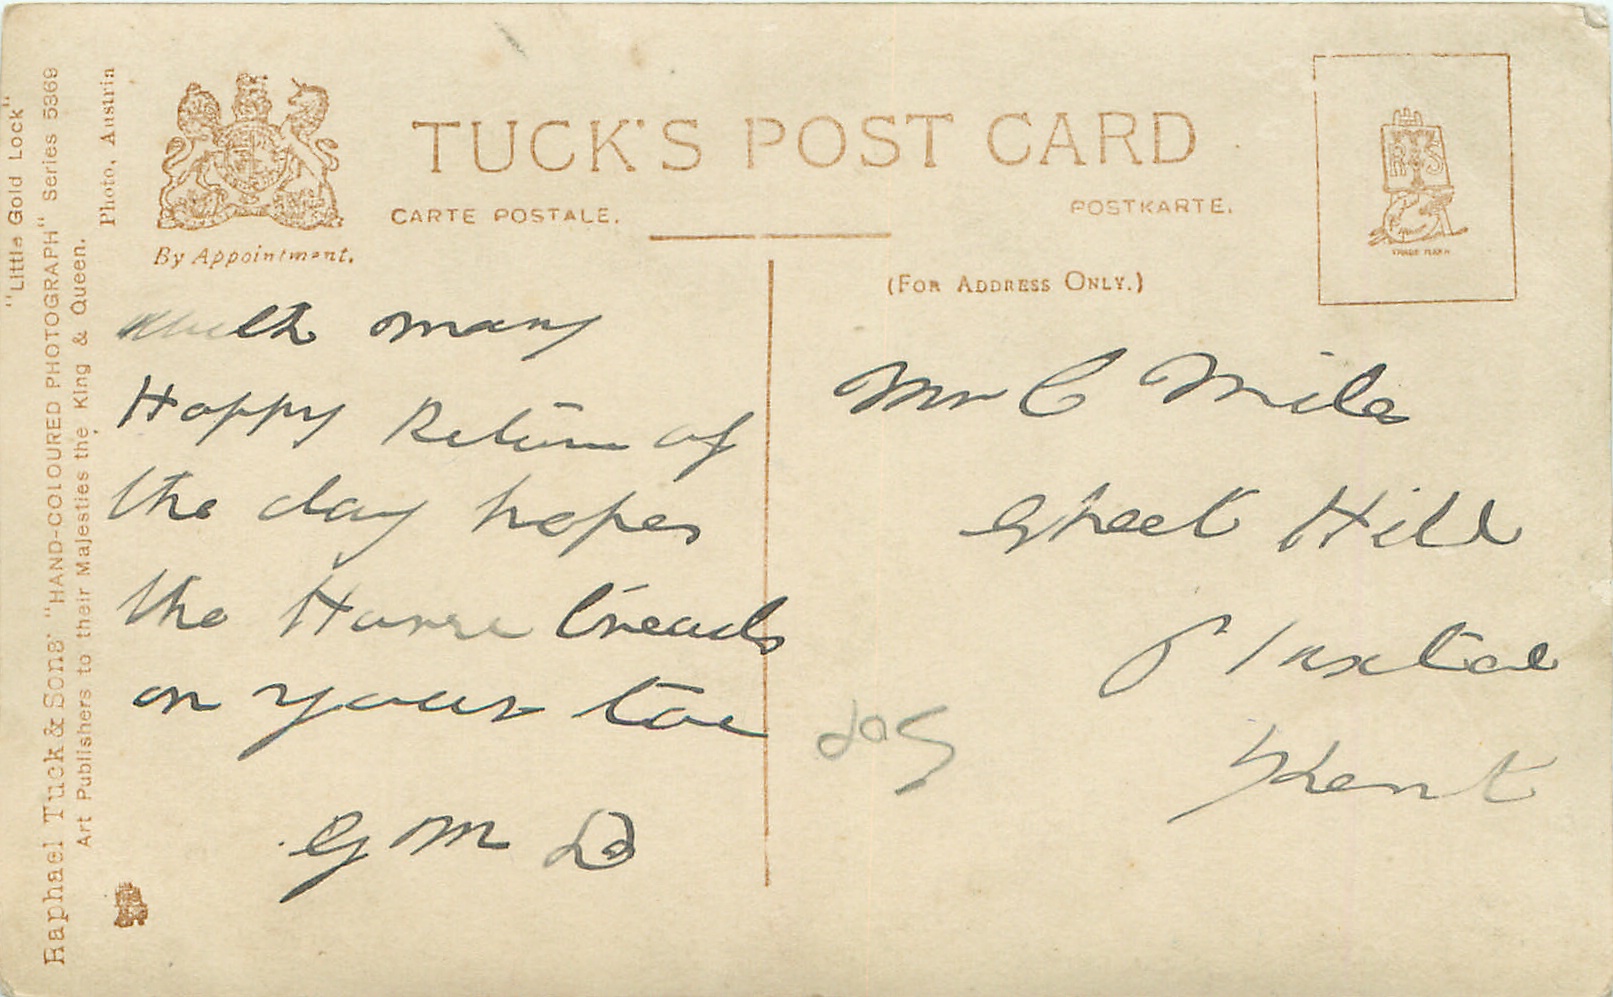 "Little Gold Lock"
Raphael Tuck & Sons' "HAND-COLOURED PHOTOGRAPH" Series 5369
Art Publishers to their Majesties the King & Queen.
Photo, Austrin
By Appointment.
TUCK'S POST CARD
CARTE POSTALE.
POSTKARTE.
(FOR ADDRESS ONLY.)
RTS
TRADE MARK
With many
Happy Return of
the day hopes
the Horse treads
on your toe
G M D
Mr C Mile
Sheet Hill
Plaxtol
Kent